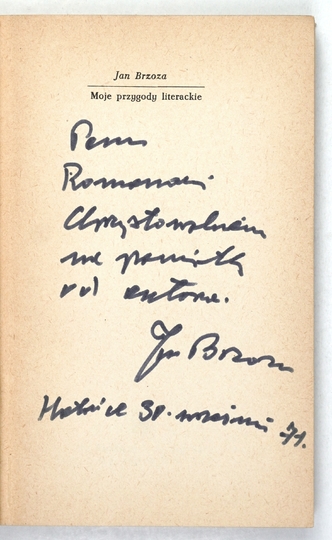 Jan Brzoza
Moje przygody literackie
Panu
Romanowi
Chrystowskiemu
na pamiątkę
od autora.
Jan Brzoza
30. września 71.